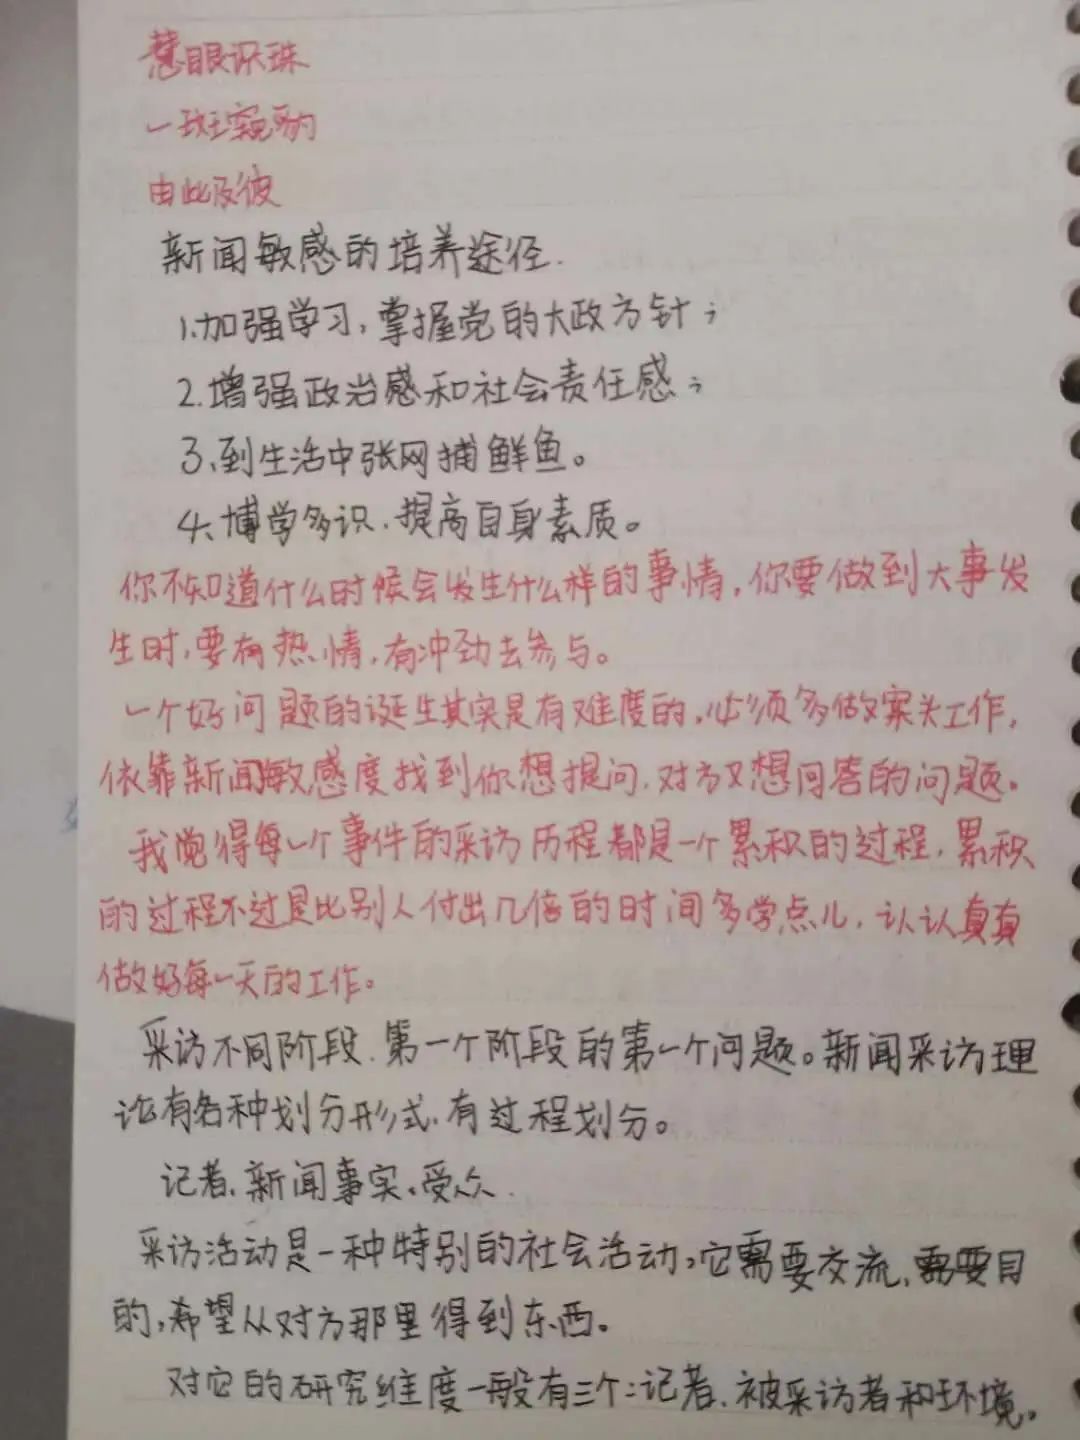 慧眼识珠
一斑窥豹
由此及彼
新闻敏感的培养途径.
1.加强学习,掌握党的大政方针;
2.增强政治感和社会责任感;
3、到生活中张网捕鲜鱼。
4、博学多识.提高自身素质。
你不知道什么时候会发生什么样的事情,你要做到大事发
生时,要有热情,有冲劲去参与。
一个好问题的诞生其实是有难度的,必须多做案头工作,
依靠新闻敏感度找到你想提问,对方又想回答的问题。
我觉得每一个事件的采访历程都是一个累积的过程,累积
的过程不过是比别人付出几倍的时间多学点儿,认认真真
做好每一天的工作。
采访不同阶段.第一个阶段的第一个问题。新闻采访理
论有各种划分形式,有过程划分。
记者、新闻事实、受众.
采访活动是一种特别的社会活动,它需要交流,需要目
的,希望从对方那里得到东西。
对它的研究维度一般有三个:记者、被采访者和环境。